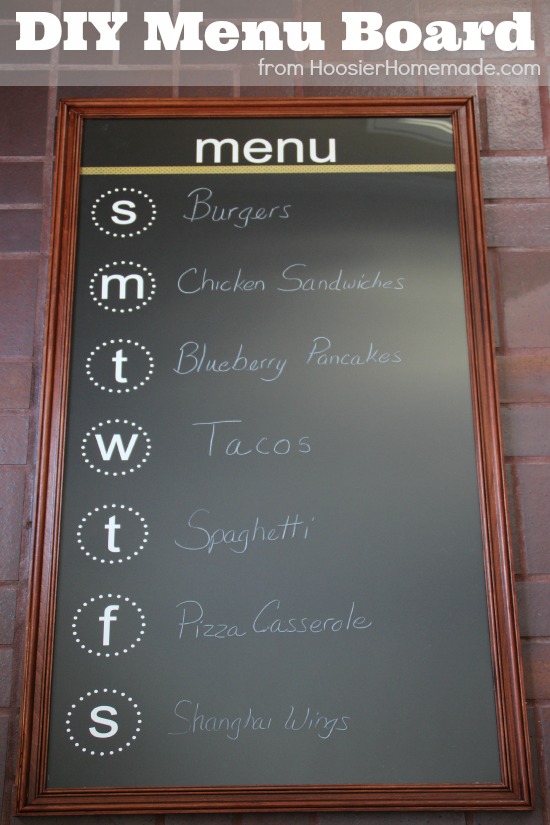 DIY Menu Board
from HoosierHomemade.com
menu
s Burgers
m Chicken Sandwiches
t Blueberry Pancakes
w Tacos
t Spaghetti
f Pizza Casserole
s Shanghai Wings